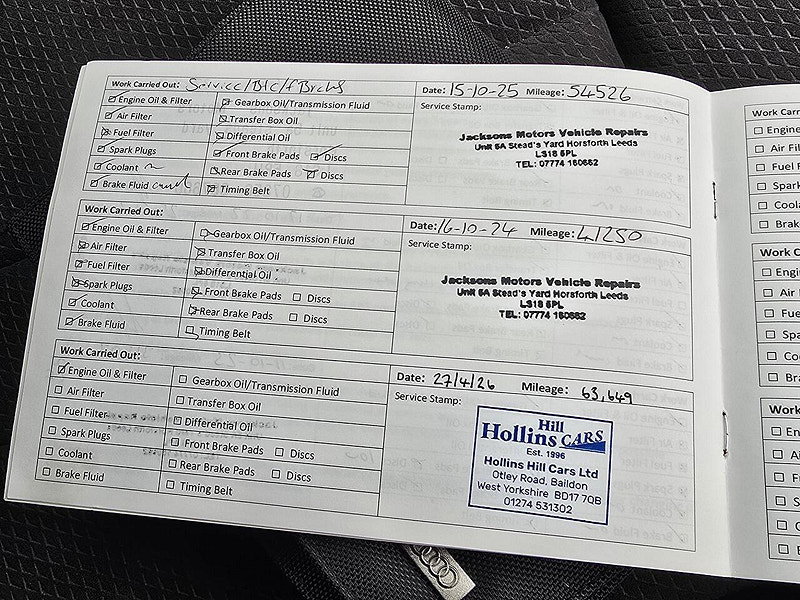 Work Carried Out: Service/
Date: 15-10-25 Mileage: 54526
Engine Oil & Filter
Gearbox Oil/Transmission Fluid
Service Stamp:
Air Filter
Transfer Box Oil
Fuel Filter
Differential Oil
Spark Plugs
Front Brake Pads Discs
Coolant
Rear Brake Pads Discs
Brake Fluid
Timing Belt
Jacksons Motors Vehicle Repairs
Unit 5A Stead's Yard Horsforth Leeds
LS18 5PL
TEL: 07774 160662
Work Carried Out:
Date: 16-10-24 Mileage: 41250
Engine Oil & Filter
Gearbox Oil/Transmission Fluid
Service Stamp:
Air Filter
Transfer Box Oil
Fuel Filter
Differential Oil
Spark Plugs
Front Brake Pads Discs
Coolant
Rear Brake Pads Discs
Brake Fluid
Timing Belt
Jacksons Motors Vehicle Repairs
Unit 5A Stead's Yard Horsforth Leeds
LS18 5PL
TEL: 07774 160662
Work Carried Out:
Date: 27/4/26 Mileage: 63,649
Engine Oil & Filter
Gearbox Oil/Transmission Fluid
Service Stamp:
Air Filter
Transfer Box Oil
Fuel Filter
Differential Oil
Spark Plugs
Front Brake Pads Discs
Coolant
Rear Brake Pads Discs
Brake Fluid
Timing Belt
Hill
Hollins CARS
Est. 1996
Hollins Hill Cars Ltd
Otley Road, Baildon
West Yorkshire BD17 7QB
01274 531302